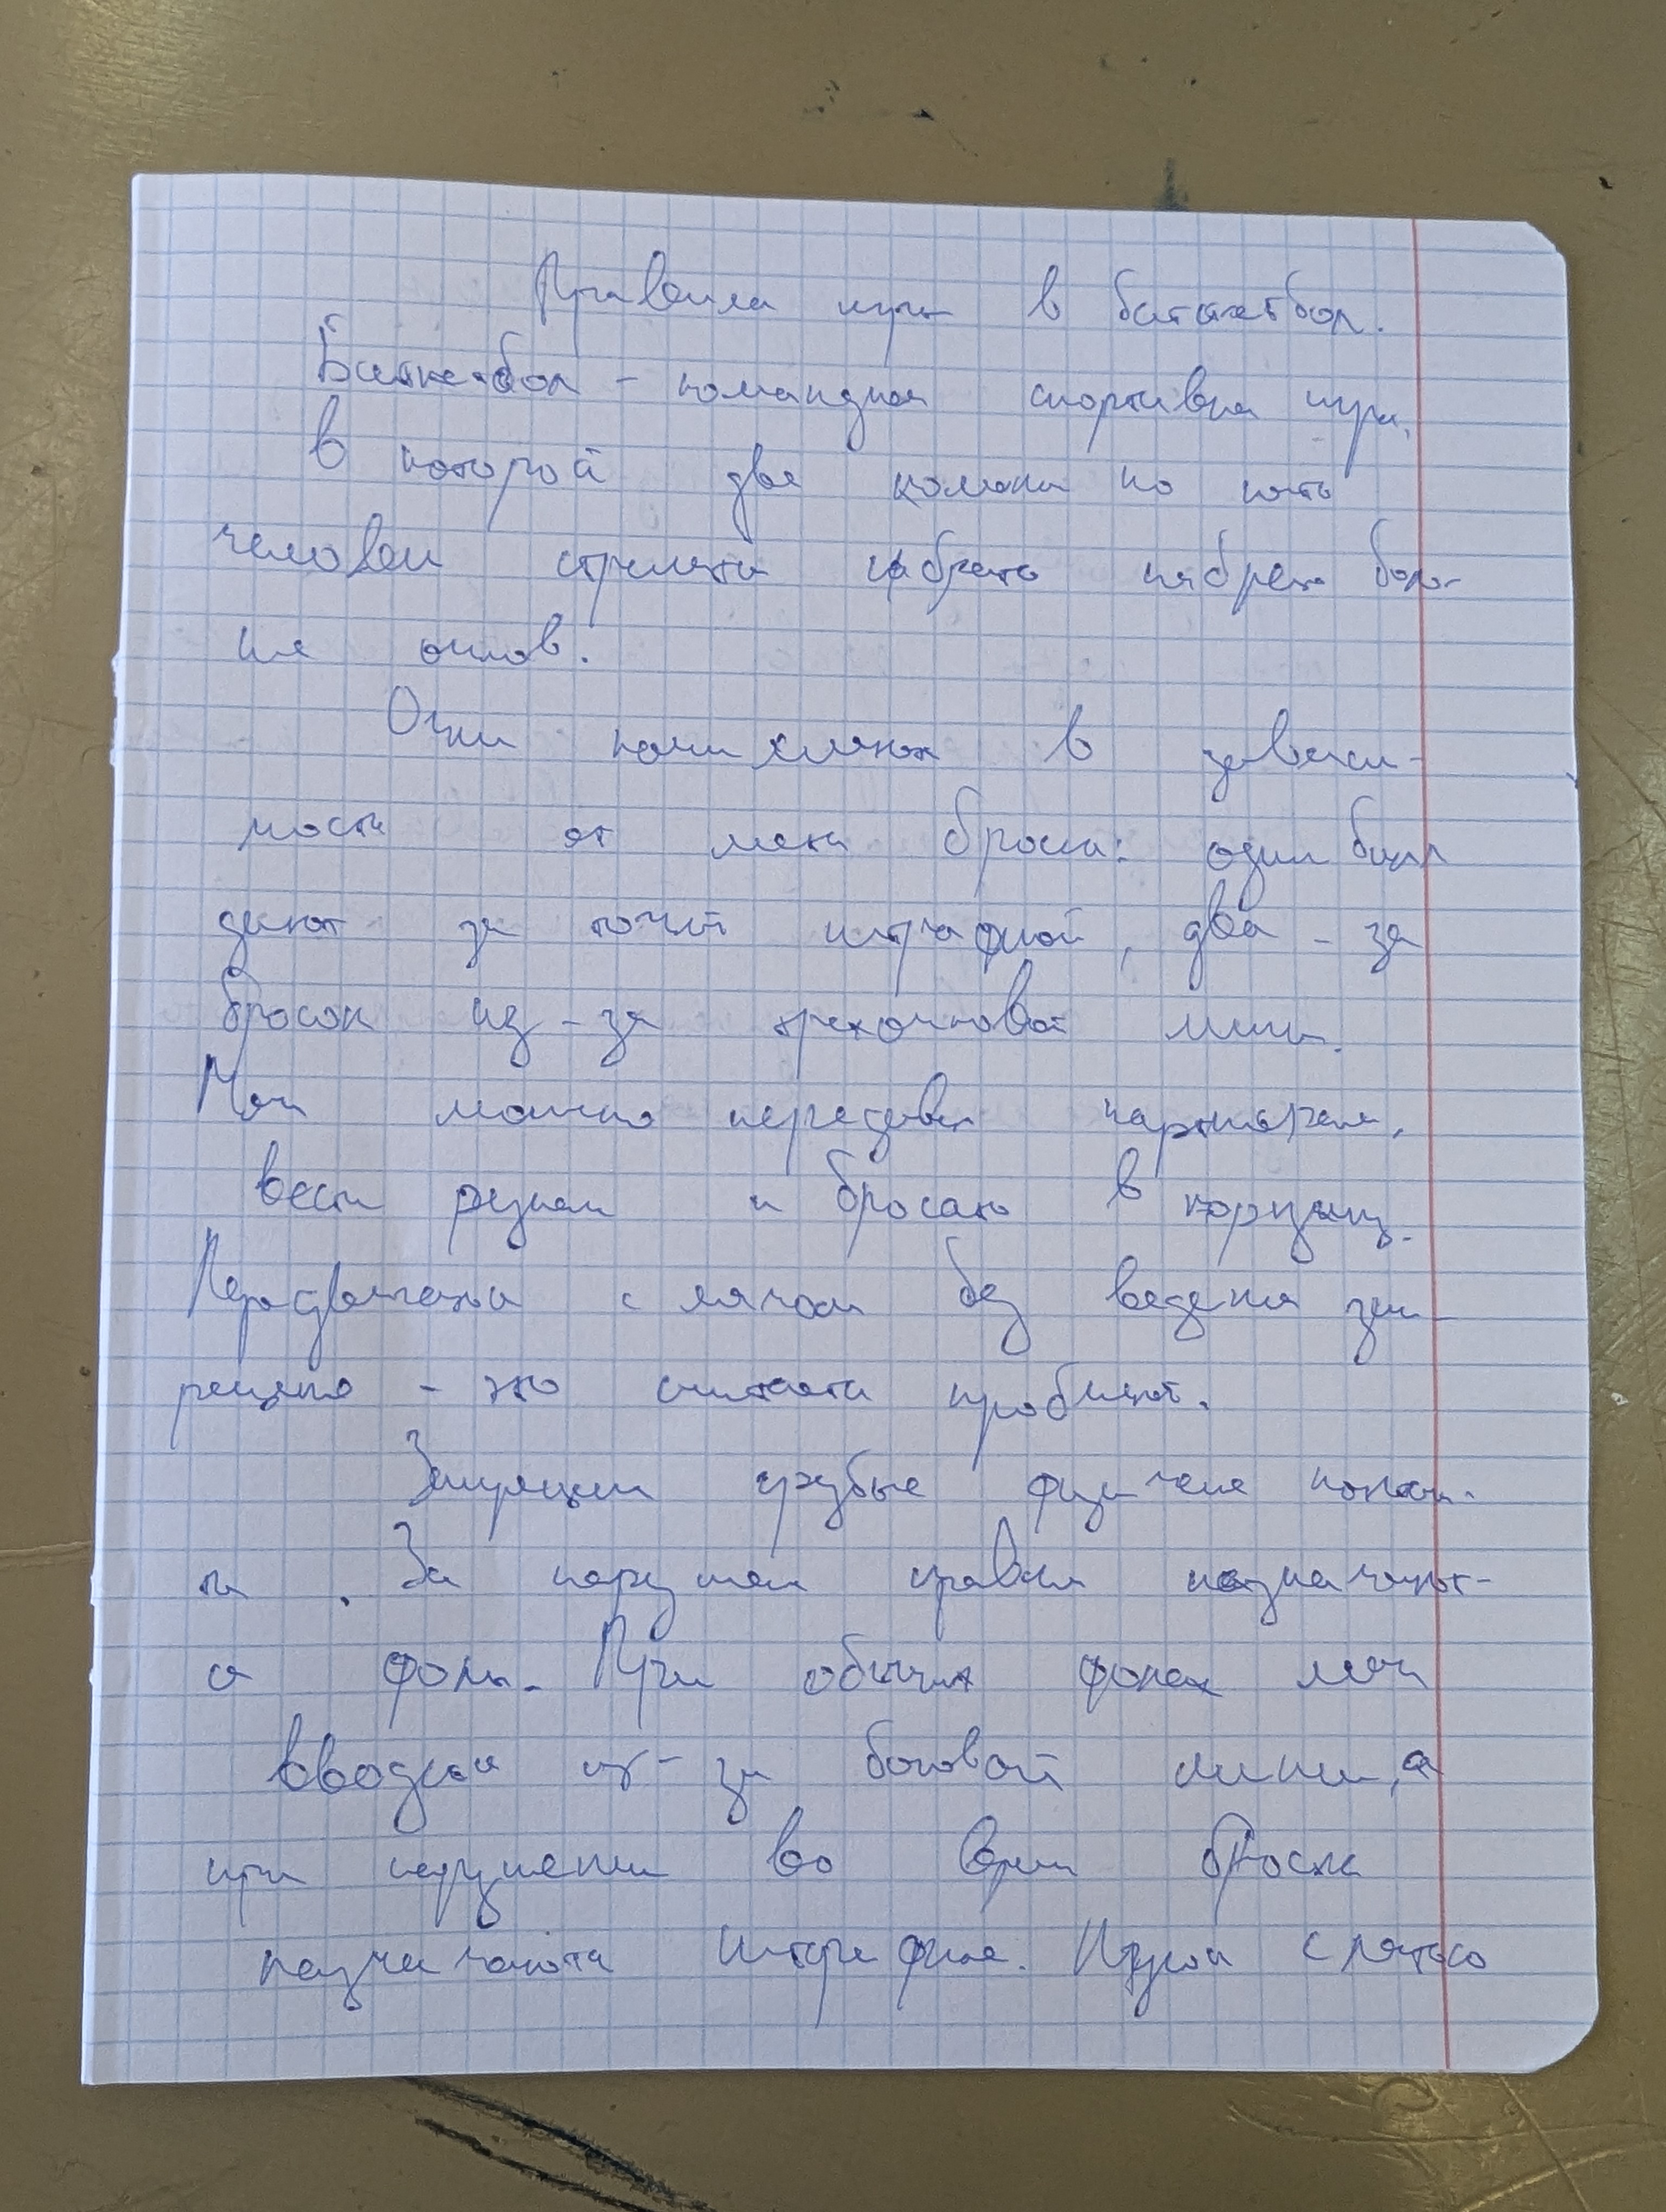 Правила игры в баскетбол.
Баскетбол – командная спортивная игра,
в которой две команды по пять
человек стремятся набрать больше
очков.
Очки начисляются в зависи-
мости от места броска: один балл
дают за точный штрафной, два – за
бросок из-за трехочковой линии.
Мяч можно передавать партнерам,
вести рукой и бросать в корзину.
Передвигаться с мячом без ведения зап-
рещено – это считается пробежкой.
Запрещены грубые физические контак-
ты. За нарушения правил назначают-
ся фолы. При обычных фолах мяч
вводится из-за боковой линии, а
при нарушении во время броска
назначаются штрафные. Игрок с пятью